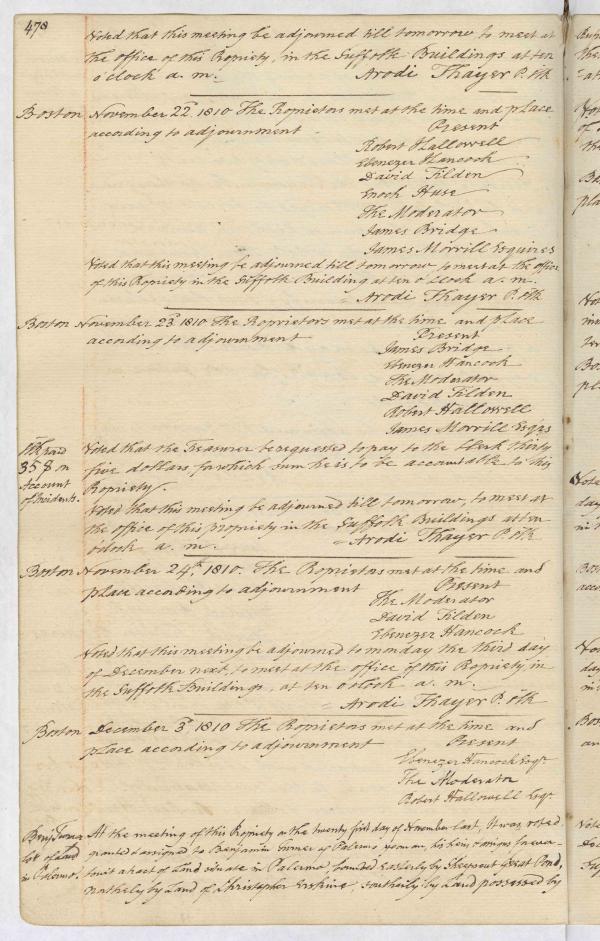 478
Voted that this meeting be adjourned till tomorrow to meet at
the office of this Propriety, in the Suffolk Buildings at ten
o'clock a. m.
Arodi Thayer P. Clk
Boston November 22d 1810 The Proprietors met at the time and place
according to adjournment.
Present
Robert Hallowell
Ebenezer Hancock
David Tilden
Enoch Huse
The Moderator
James Bridge
James Morrill Esquires
Voted that this meeting be adjourned till tomorrow to meet at the office
of this Propriety in the Suffolk Building at ten o'clock a. m.
Arodi Thayer P. Clk
Boston November 23d 1810 The Proprietors met at the time and place
according to adjournment
Present
James Bridge
Ebenezer Hancock
The Moderator
David Tilden
Robert Hallowell
James Morrill Esqrs
paid
35 $ on
Account
of Incidents.
Voted that the Treasurer be requested to pay to the Clerk thirty
five dollars for which sum he is to be accountable to this
Propriety.
Voted that this meeting be adjourned till tomorrow, to meet at
the office of this propriety in the Suffolk Buildings at ten
o'clock a. m.
Arodi Thayer P. Clk
Boston November 24th 1810. The Proprietors met at the time and
place according to adjournment
Present
The Moderator
David Tilden
Ebenezer Hancock
Voted that this meeting be adjourned to monday the third day
of December next, to meet at the office of this Propriety in
the Suffolk Buildings, at ten o'clock a. m.
Arodi Thayer P. Clk
Boston December 3d 1810 The Proprietors met at the time and
place according to adjournment
Present
Ebenezer Hancock Esqr
The Moderator
Robert Hallowell Esqr
Benj Turner
of Land
in Palermo.
At the meeting of this Propriety on the twenty first day of November last, It was voted
granted & assigned to Benjamin Turner of Palermo yeoman, his heirs & assigns forever
a tract of Land situate in Palermo, bounded Easterly by Sheepscut Great Pond,
northerly by Land of Christopher Erskine, southerly by Land possessed by